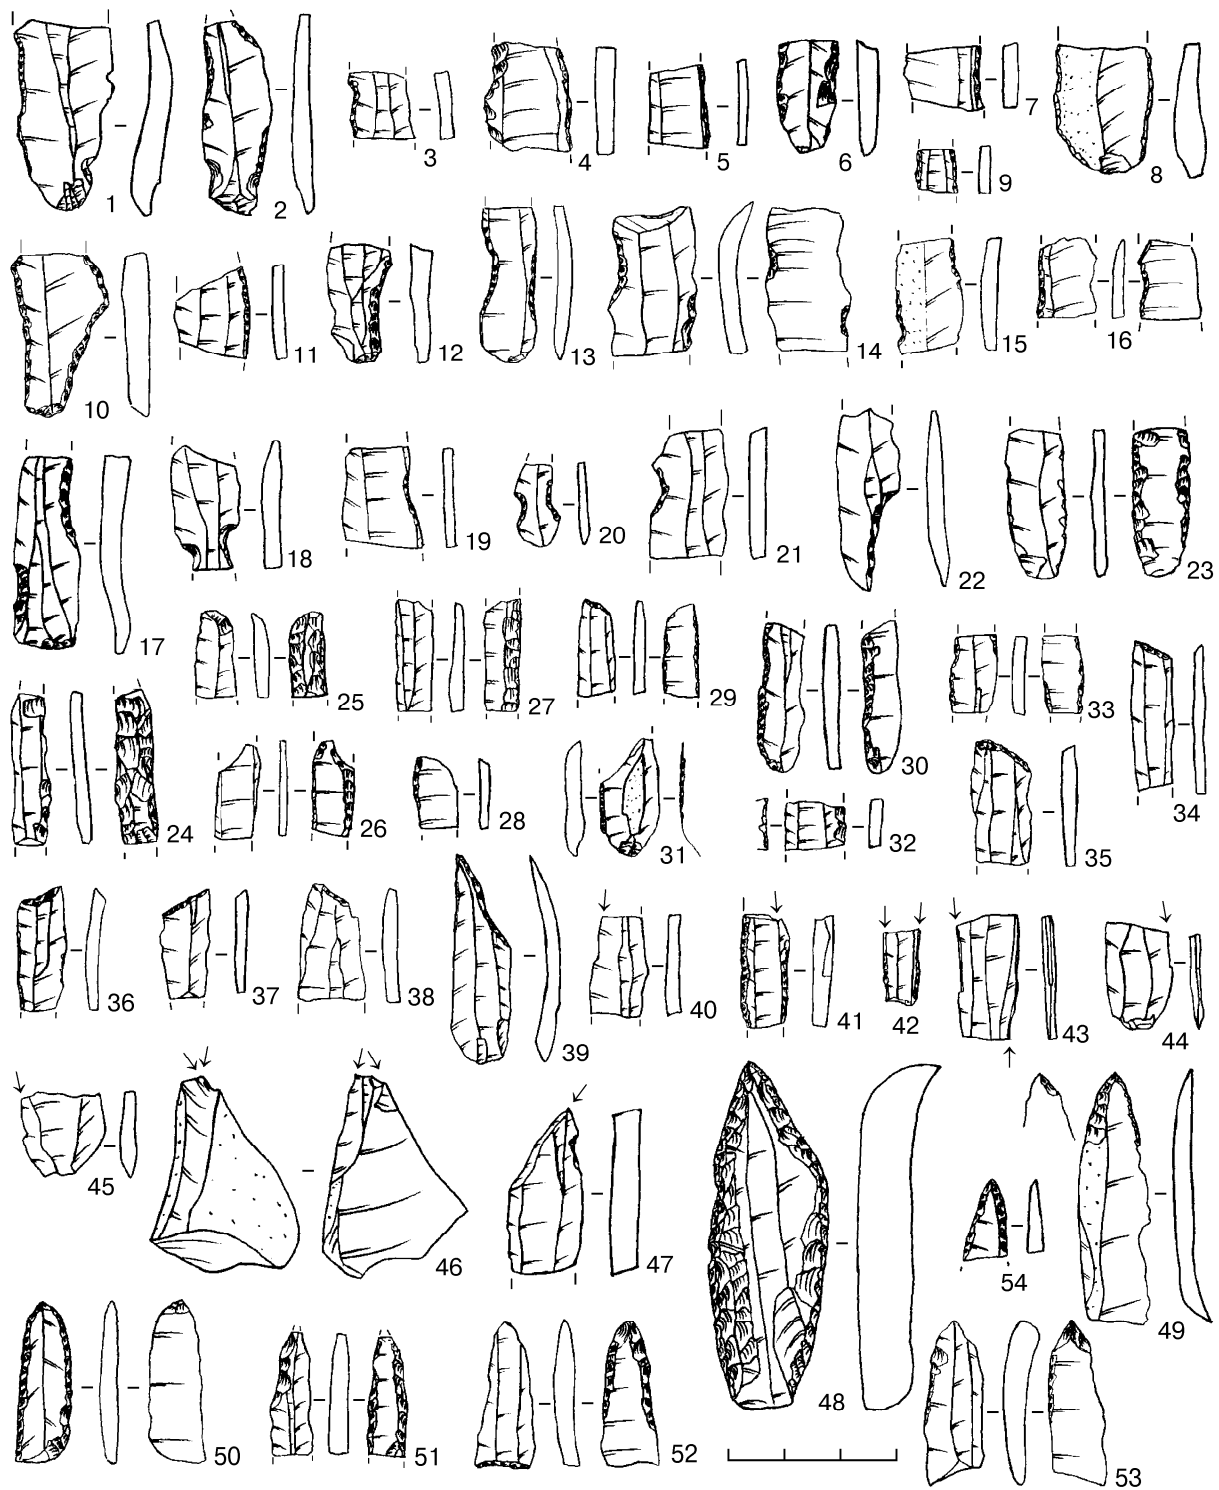 1 2 3 4 5 6 7 8
9
10 11 12 13 14 15 16
17 18 19 20 21 22 23
24 25 26 27 28 29 30 31 32 33 34 35
36 37 38 39 40 41 42 43 44
45 46 47 48 49 54
50 51 52 53